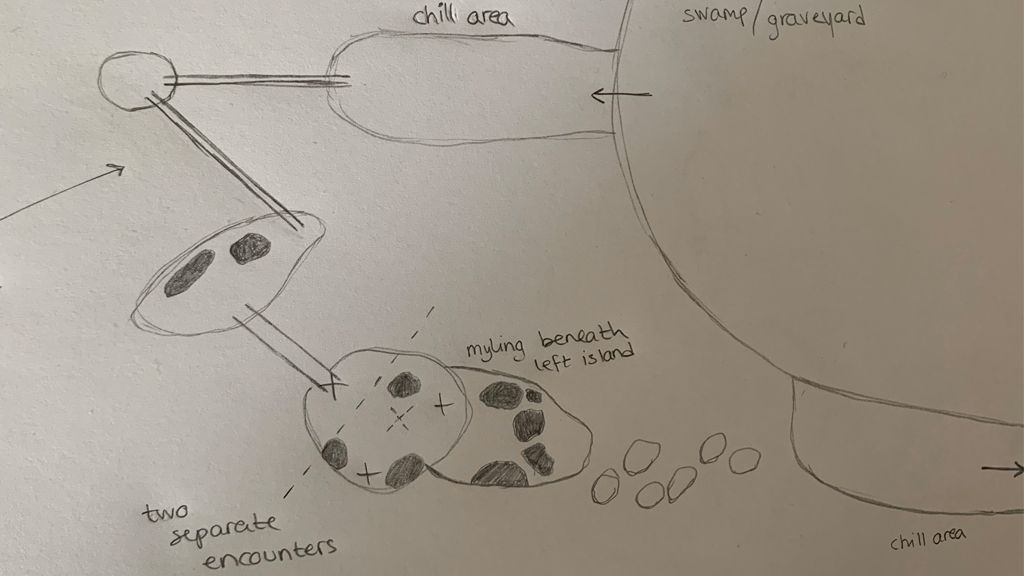 chill area
swamp/graveyard
myling beneath
left island
two
separate
encounters
chill area